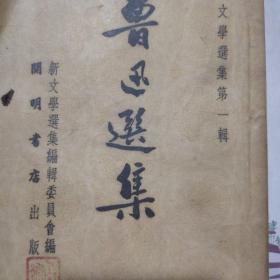 文學選集第一輯
魯迅選集
新文學選集編輯委員會編
開明書店出版